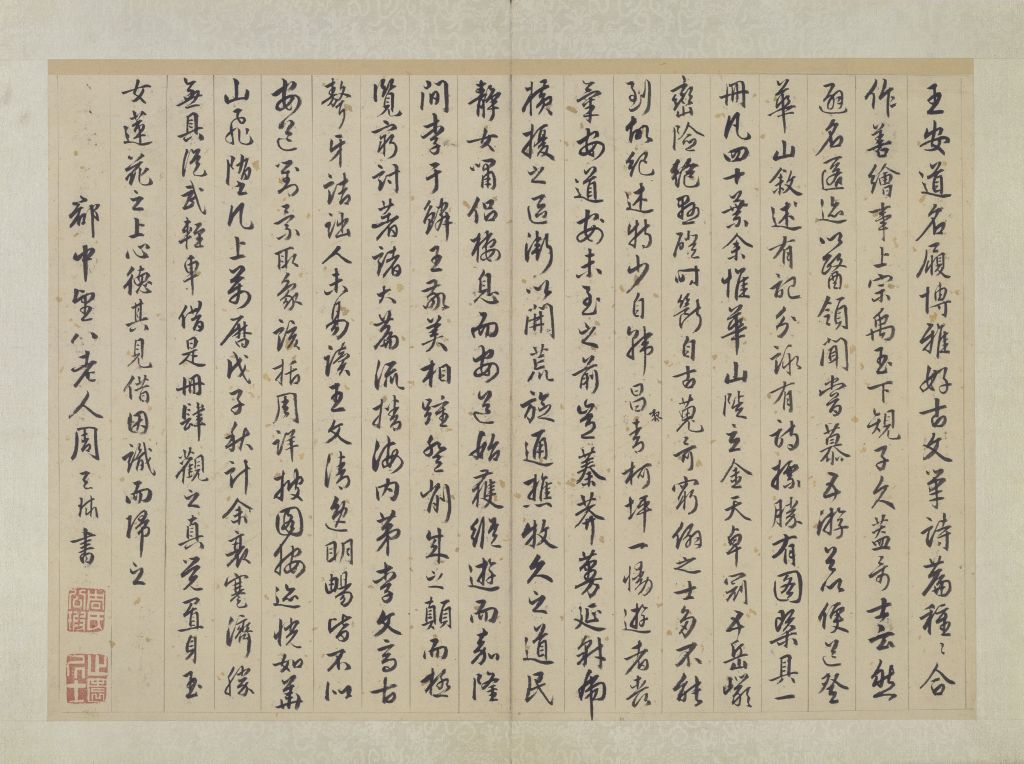 王安道名履博雅好古文筆詩篇種〻合
作善繪事上宗禹玉下規子久蓋奇士云然
避名匿迹以醫領聞嘗慕五游若以便道登
華山敘述有記分詠有詩摽勝有圖槩具一
冊凡四十葉余惟華山陡立金天卓冠五岳巘
巒險絕懸磴時斷自古蒐奇窮僻之士多不能
到故紀述特少自韓昌黎青柯坪一慟遊者喪
氣安道安未至之前豈蓁莽蔓延豺虎
橫擾之區漸以開荒旋通樵牧久之道民
靜女嘯侶棲息而安道始蓰縱遊而嘉隆
間李于鱗王敬美相踵登削成之顛而極
覽窮討著諸大篇流播海内第李文高古
聱牙詰詘人未易讀王文清逸明暢皆不似
安道對景取象該括周詳披圖按迹恍如華
山飛墮几上萬曆戊子秋計余裹蹇濟勝
無具從武輕車借是冊肆觀之真覺置身玉
女蓮花之上心德其見借因識而歸之
郤中望八老人周天球書